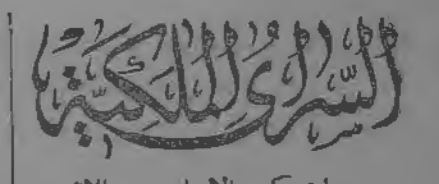 السراي الملكية